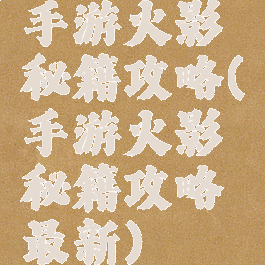 手游火影
秘籍攻略(
手游火影
秘籍攻略
最新)